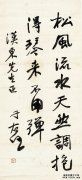 松風流水天然調抱
得琴来不用彈
漢東先生正
于右任